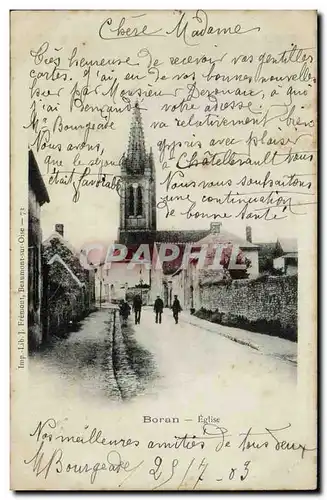 Chère Madame
Très heureuse de recevoir vos gentilles
cartes. J'ai eu de vos bonnes nouvelles
hier par Monsieur à qui
j'ai demandé votre adresse.
Mr Bourgeade va relativement bien
Nous avons appris avec plaisir
que le séjour à Châtellerault vous
était favorable
Nous vous souhaitons
une continuation
de bonne santé.
Imp.-Lib. J. Frémont, Beaumont-sur-Oise — 75
Boran — Église
Nos meilleures amitiés de tous deux
M Bourgeade 28/7 03